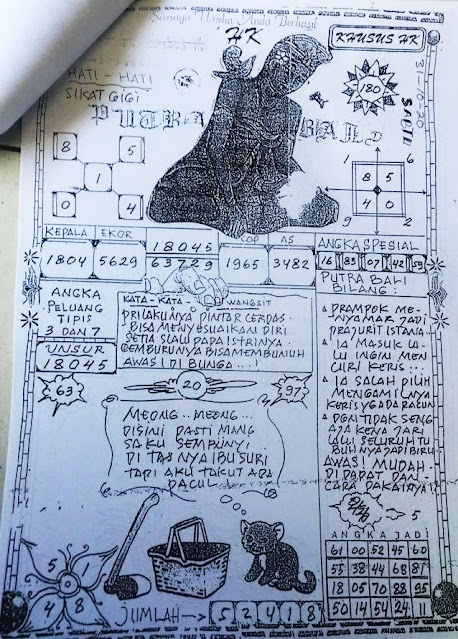 Semoga Usaha Anda Berhasil
HK
KHUSUS HK
HATI - HATI
SIKAT GIGI
PUTRA BALI
180
31-10-20
SABTU
8 5
1
0 4
1 6
8 5
4 0
9 2
KEPALA EKOR 18045 COP AS ANGKA SPESIAL
1804 5629 63729 1965 3482 16 83 07 42 59
PUTRA BALI
BILANG:
ANGKA
PELUANG
TIPIS
3 DAN 7
UNSUR
18045
KATA - KATA - WANGSIT
PRILAKUNYA PINTAR CERDAS
BISA MENYESUAIKAN DIRI
SETIA SLALU PADA ISTRINYA.
CEMBURUNYA BISA MEMBUNUH
AWAS! DI BUNGA...!
63
20
97
MEONG.. MEONG...
DISINI PASTI MANG
SAKU SEMBUNYI
DI TAS NYA IBU SURI
TAPI AKU TAKUT ADA
PACUL
PRAMPOK ME-
NYAMAR JADI
PRAJURIT ISTANA
IA MASUK LA-
LU INGIN MEN
CURI KERIS...
IA SALAH PILIH
MENGAMBILNYA
KERIS YG ADA RACUN
DGN TIDAK SENG
AJA KENA JARI
LALU SELURUH TU
BUHNYA JADI BIRU
AWAS! MUDAH-
DI DAPAT DAN-
CARA PAKAINYA!!
5
ANGKA JADI
61 00 52 45 60
55 38 44 68 81
18 05 70 88 95
50 14 54 24 11
5 1
4 8
JUMLAH 5 2 4 1 8